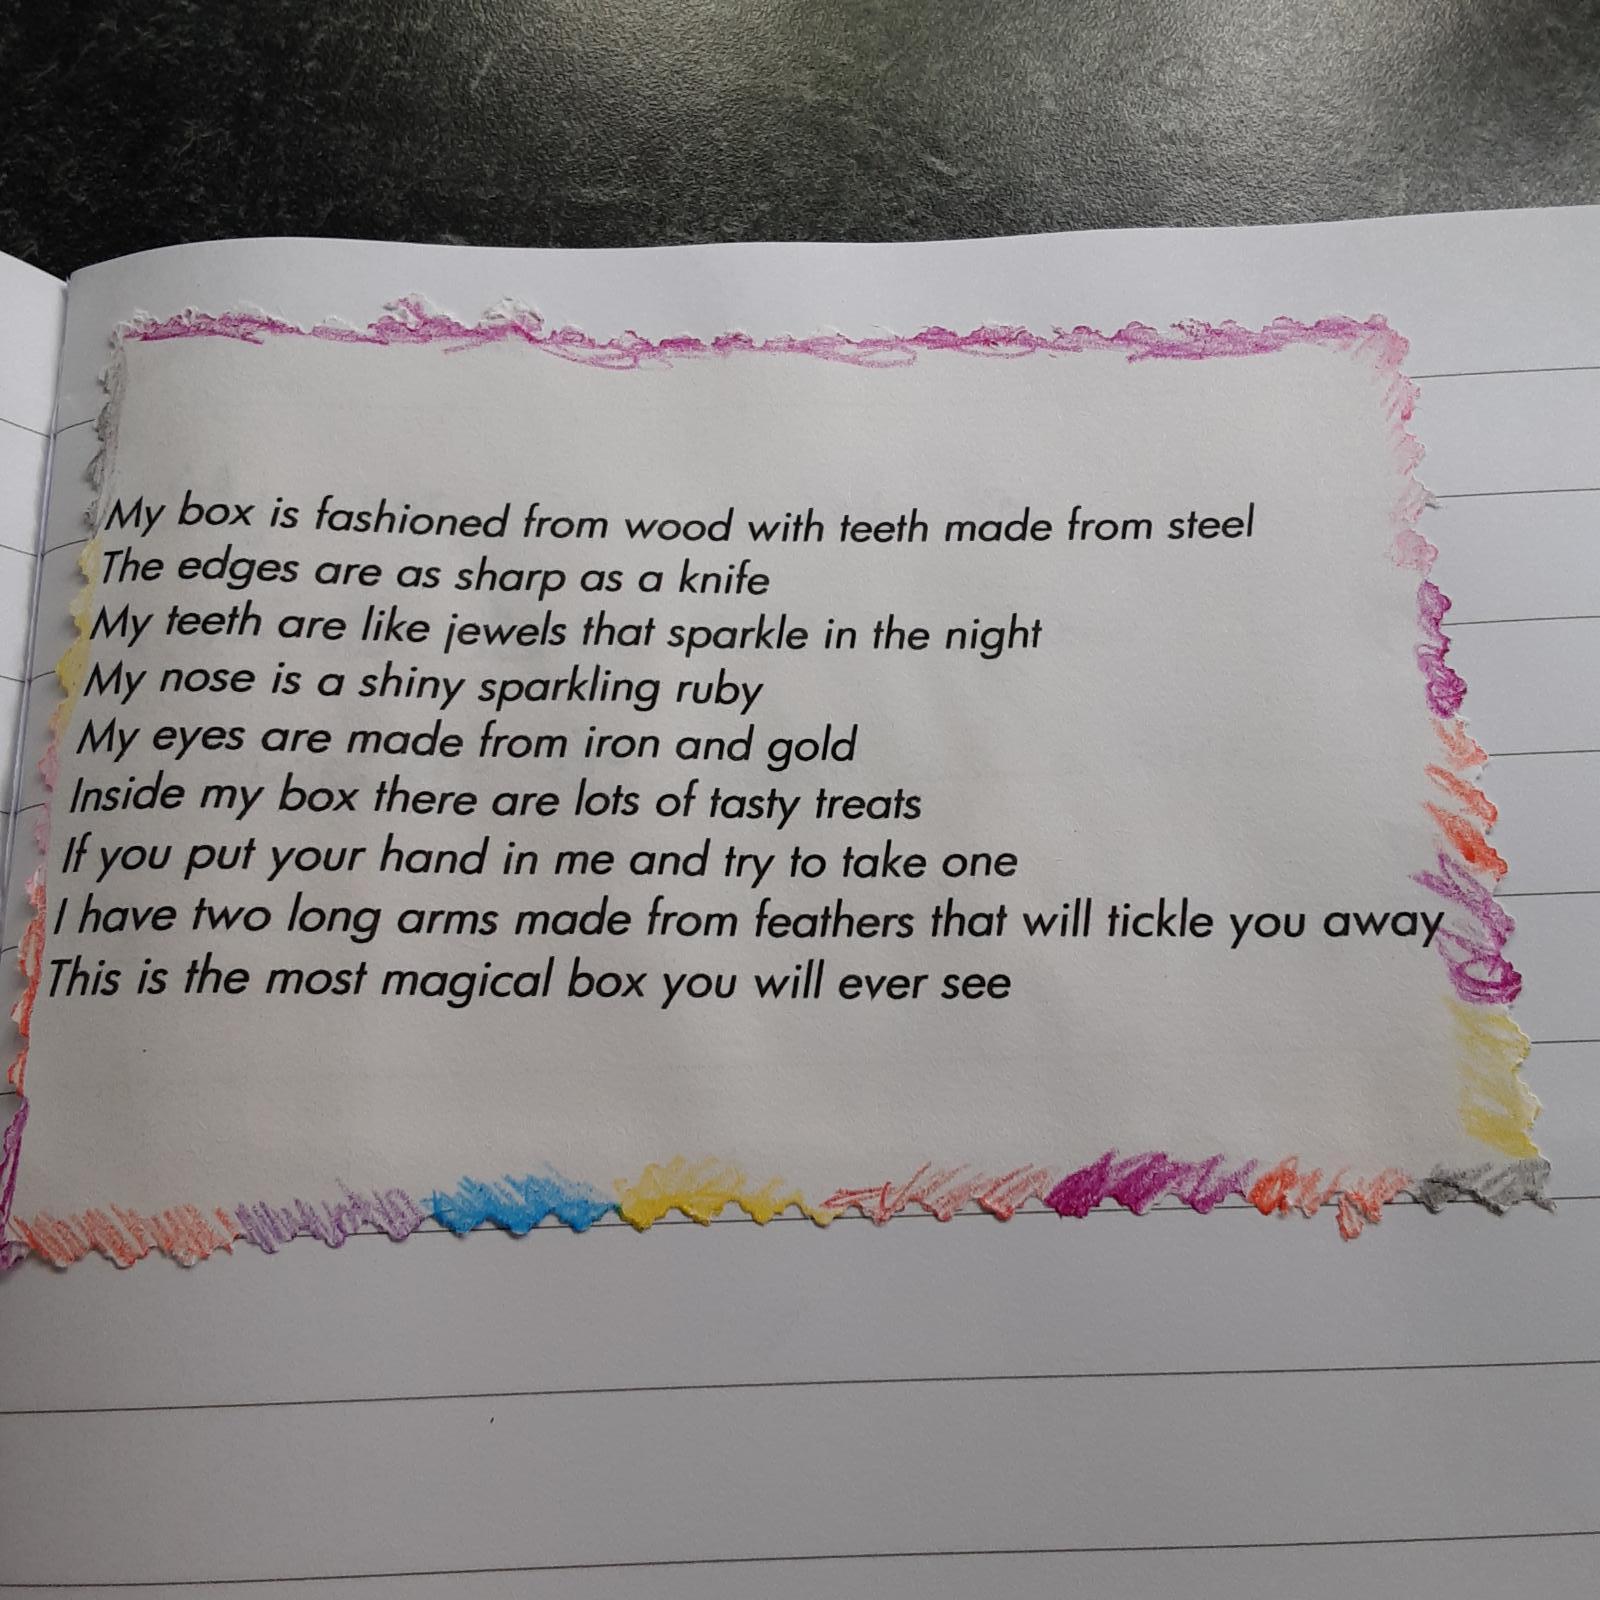 My box is fashioned from wood with teeth made from steel
The edges are as sharp as a knife
My teeth are like jewels that sparkle in the night
My nose is a shiny sparkling ruby
My eyes are made from iron and gold
Inside my box there are lots of tasty treats
If you put your hand in me and try to take one
I have two long arms made from feathers that will tickle you away
This is the most magical box you will ever see